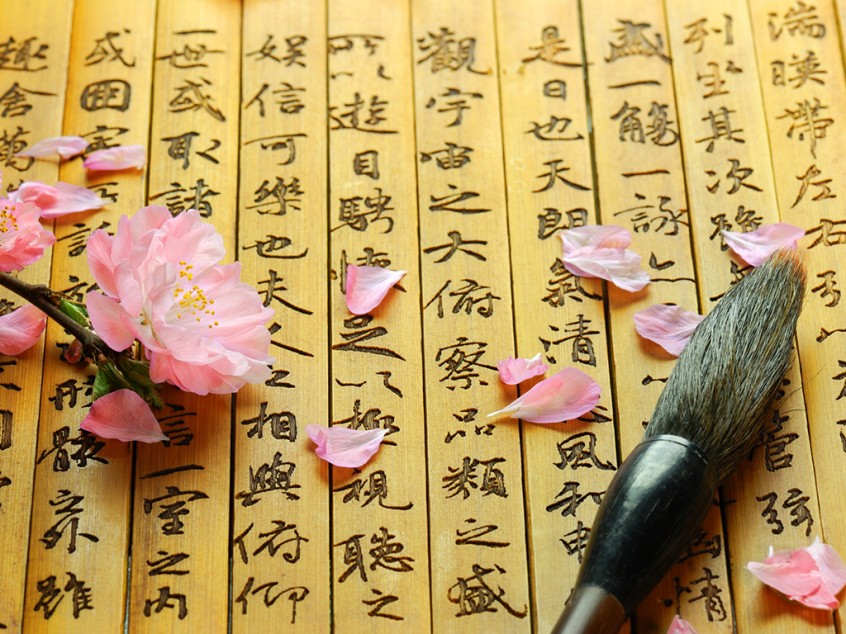 湍暎帶左右引
列坐其次雖管弦
盛一觴一詠亦幽情
是日也天朗氣清風和
觀宇宙之大俯察品類之盛
所以遊目騁懷足以極視聽之
娛信可樂也夫人之相與俯仰
一世或取諸言一室之內
或因寄形骸之外雖
趣舍萬